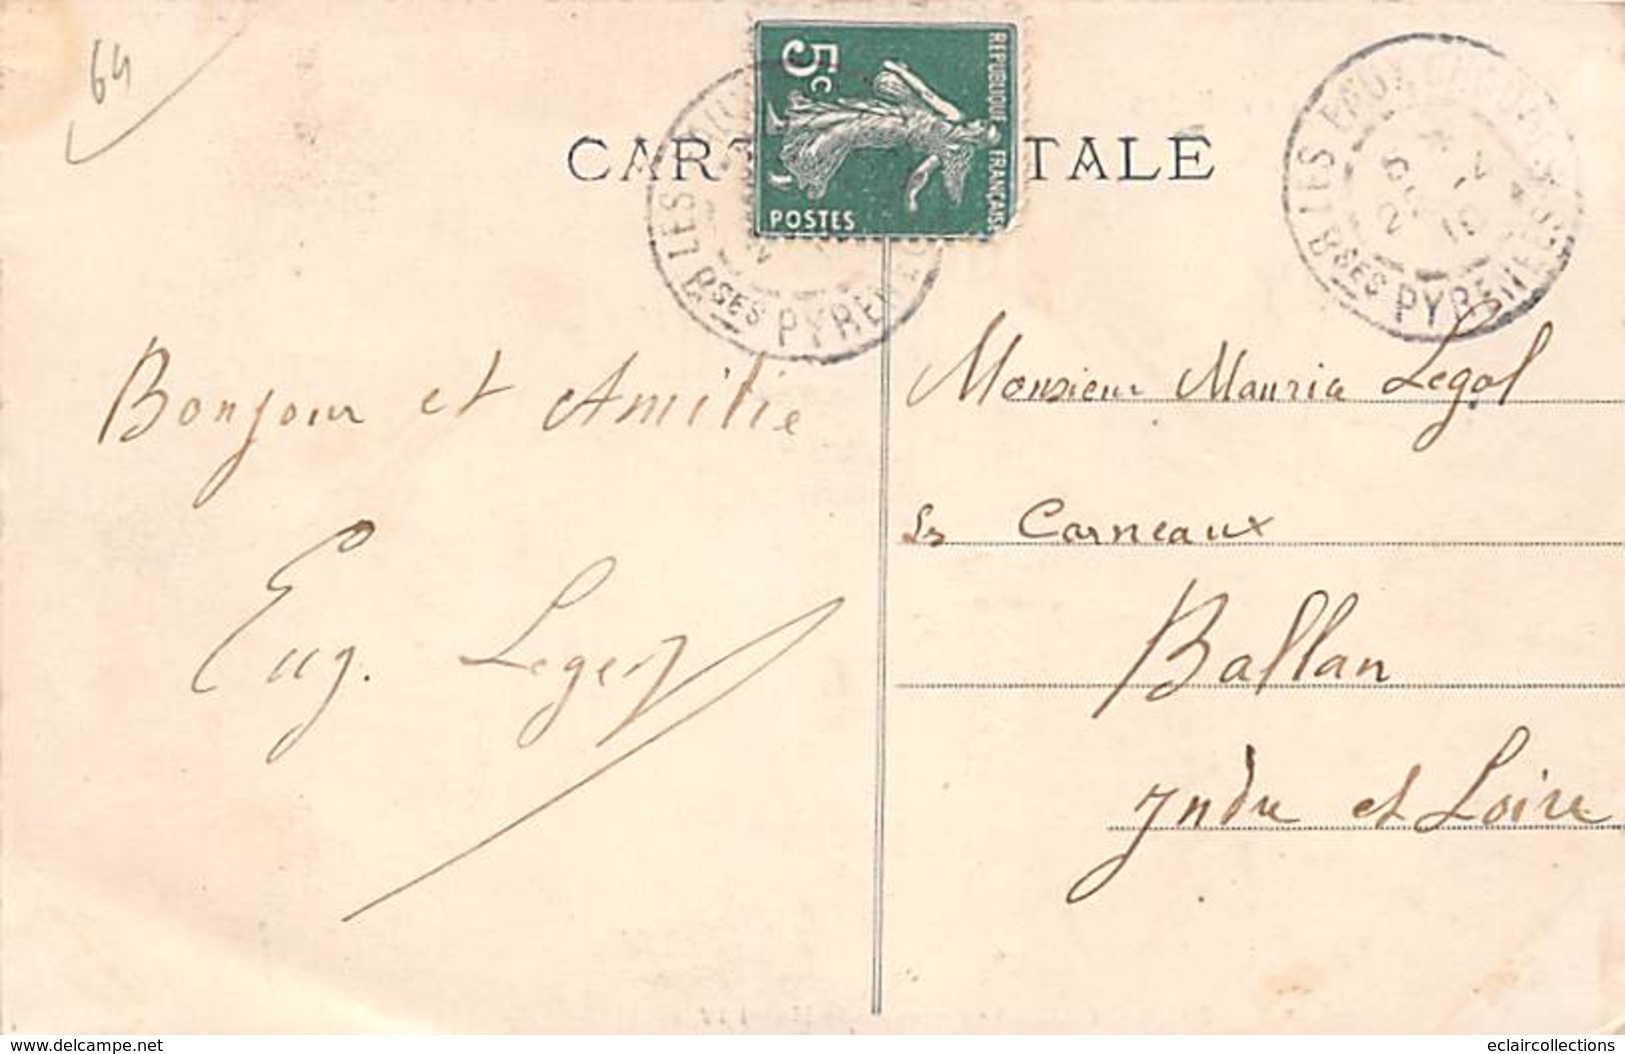 64
CARTE POSTALE
5c
POSTES
REPUBLIQUE FRANÇAISE
LES EAUX
Bses PYRENEES
LES
Bses PYRENEES
Bonjour et Amitie
Eug. Leger
Monsieur Mauric Legol
Les Carneaux
Ballan
Indre et Loire
www.delcampe.net
eclaircollections